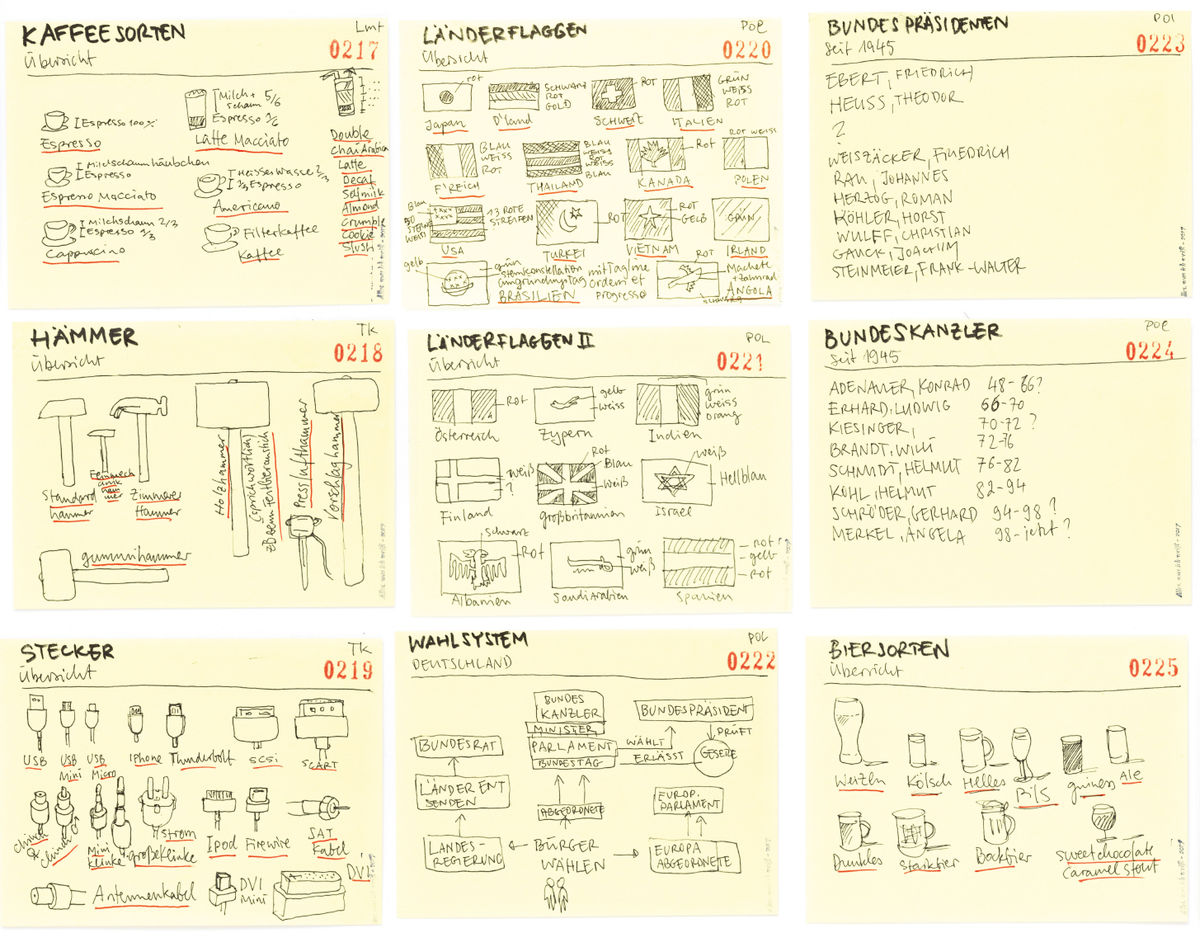 KAFFEESORTEN
Lmt
Übersicht
0217
Espresso 100%
Espresso
Milch +
schaum 5/6
Espresso
Latte Macciato
Milchschaumhäubchen
Espresso
Espresso Macciato
Heisses Wasser 2/3
1/3 Espresso
Americano
Milchschaum 2/3
Espresso 1/3
Cappuccino
Filterkaffee
Kaffee
Double
Chai Arabica
Latte
Decaf
Selfmilk
Almond
Crumble
Cookie
Slush
LÄNDERFLAGGEN
POL
Übersicht
0220
rot
Japan
SCHWARZ
ROT
GOLD
D'land
ROT
SCHWEIZ
GRÜN
WEISS
ROT
ITALIEN
BLAU
WEISS
ROT
F'REICH
BLAU
WEISS
ROT
WEISS
BLAU
THAILAND
ROT
KANADA
ROT WEISS
POLEN
Blau
50
STERNE
WEISS
13 ROTE
STREIFEN
USA
ROT
TÜRKEI
ROT
GELB
VIETNAM
GRÜN
IRLAND
gelb
grün
Sternkonstellation
am gründungstag
mit Tagline
ordem et
progresso
BRASILIEN
ROT
Machete
+ Zahnrad
schwarz
ANGOLA
BUNDESPRÄSIDENTEN
POL
seit 1945
0223
EBERT, FRIEDRICH
HEUSS, THEODOR
?
WEISZÄCKER, FRIEDRICH
RAU, JOHANNES
HERTZOG, ROMAN
KÖHLER, HORST
WULFF, CHRISTIAN
GAUCK, JOACHIM
STEINMEIER, FRANK-WALTER
HÄMMER
TK
Übersicht
0218
Standard
hammer
Feinmech
anik
ham
mer
Zimmerer
Hammer
Holzhammer
(sprichwörtlich)
zB beim Festbieranstich
Presslufthammer
Vorschlaghammer
gummihammer
LÄNDERFLAGGEN II
POL
Übersicht
0221
ROT
Österreich
gelb
weiss
Zypern
grün
weiss
orang
Indien
weiß
?
Finland
Rot
Blau
weiß
großbritannien
weiß
Hellblau
Israel
Schwarz
Rot
Albanien
grün
weiß
Saudi Arabien
rot
gelb
rot
Spanien
BUNDESKANZLER
POL
seit 1945
0224
ADENAUER, KONRAD 48-66?
ERHARD, LUDWIG 66-70
KIESINGER, 70-72 ?
BRANDT, WILLI 72-76
SCHMIDT, HELMUT 76-82
KOHL, HELMUT 82-94
SCHRÖDER, GERHARD 94-98 ?
MERKEL, ANGELA 98-jetzt ?
STECKER
TK
Übersicht
0219
USB
USB
Mini
USB
Micro
Iphone
Thunderbolt
SCSI
SCART
chinch
chinch
Mini
klinke
große Klinke
Strom
Ipod
Firewire
SAT
Kabel
Antennenkabel
DVI
Mini
DVI
WAHLSYSTEM
POL
DEUTSCHLAND
0222
BUNDES
KANZLER
MINISTER
PARLAMENT
BUNDESTAG
BUNDESPRÄSIDENT
WÄHLT
PRÜFT
ERLÄSST
GESETZE
BUNDESRAT
LÄNDER ENT
SENDEN
ABGEORDNETE
EUROP.
PARLAMENT
LANDES-
REGIERUNG
BÜRGER
WÄHLEN
EUROPA
ABGEORDNETE
BIERSORTEN
Übersicht
0225
Weizen
Kölsch
Helles
Pils
guiness
Ale
Dunkles
Starkbier
Bockbier
Sweet chocolate
Caramel Stout